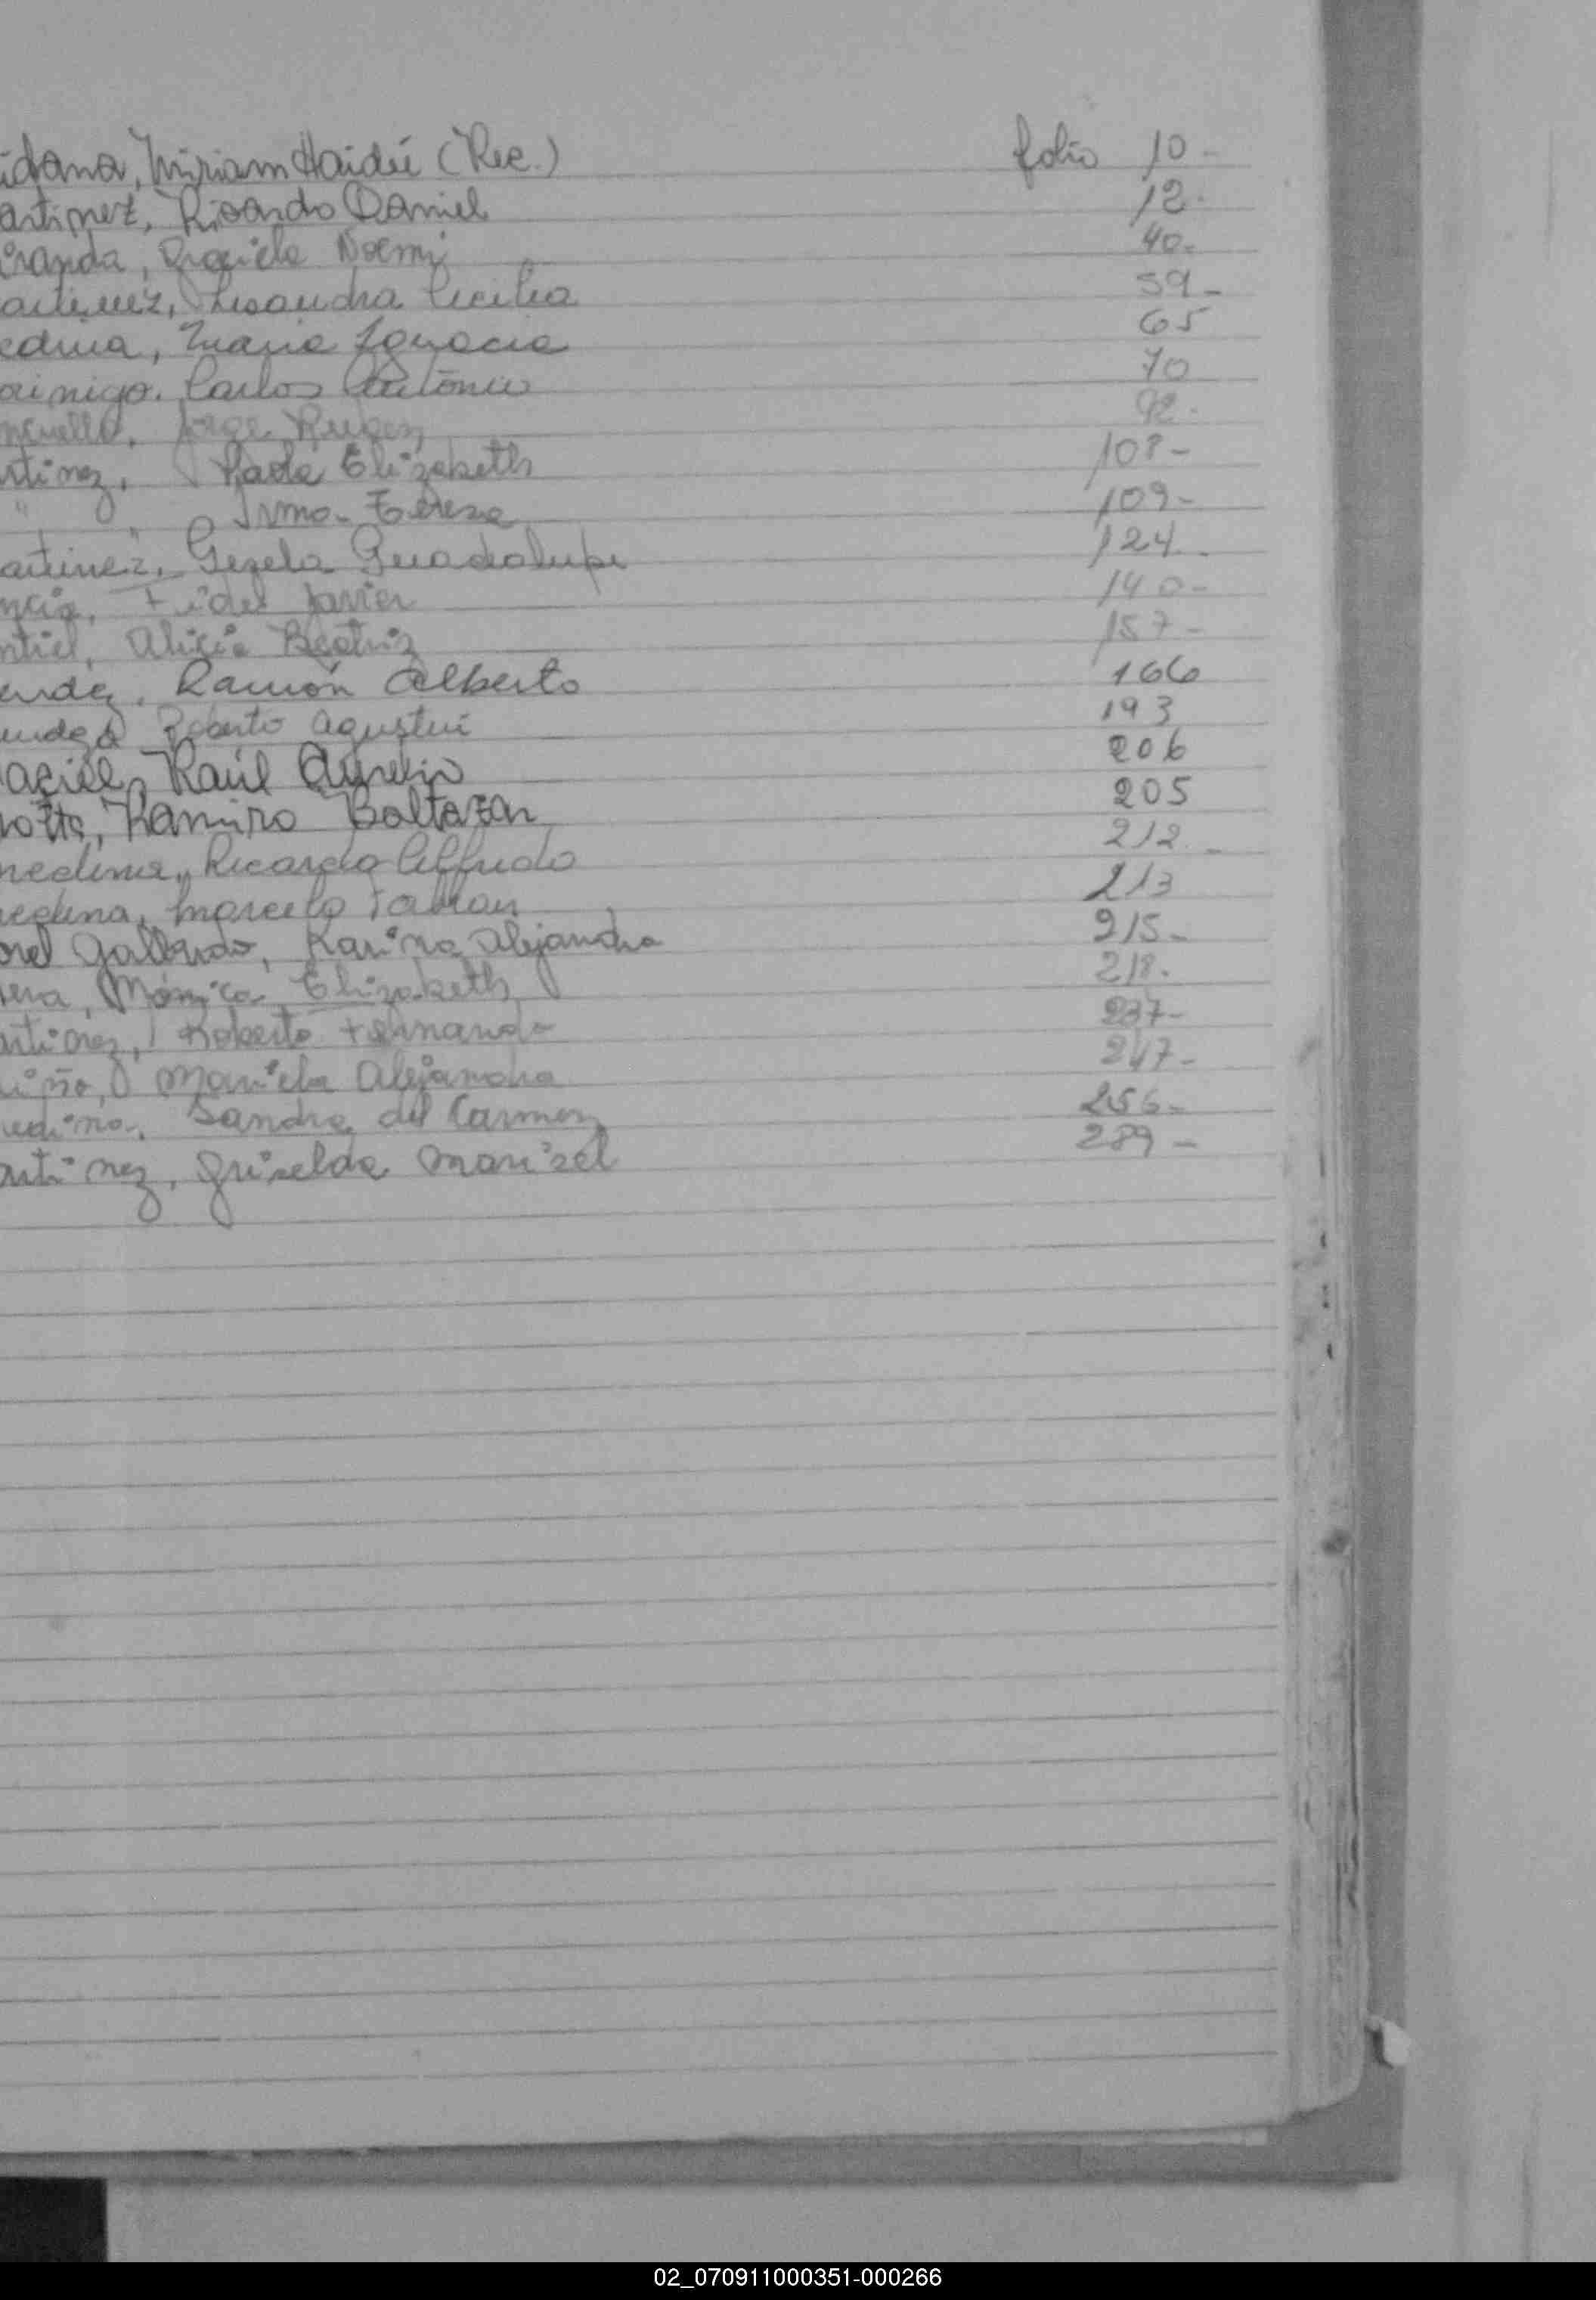 idana, Miriam Haidée (Rec.) folio 10-
artinez, Ricardo Daniel 12.
iranda, Graciela Noemi 40.
artinez, Lisandra Cecilia 59-
edina, Maria Ignacia 65
oinigo. Carlos Antonio 70
Jorge Ruben 92.
rtinez, Paola Elizabeth 108-
" Irma Teresa 109-
artinez, Gezela Guadalupe 124.
ncia, Fidel Javier 140-
ntiel, Alicia Beatriz 157-
endez, Ramón Alberto 166
endez Roberto Agustin 193
aciel, Raúl Aurelio 206
otta, Ramiro Baltazar 205
medina, Ricardo Alfredo 212-
edina, Marcelo Fabian 213
orel Gallardo, Karina Alejandra 215-
Mónica Elizabeth 218.
artinez, Roberto Fernando 237-
iño, Mariela Alejandra 247-
edina, Sandra del Carmen 256-
artinez, Griselda Marisel 289-
02_070911000351-000266